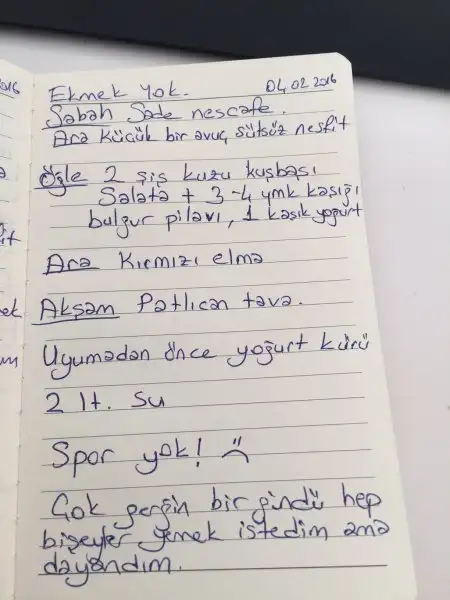 Ekmek yok. 04.02.2016
Sabah Sade nescafe.
Ara Küçük bir avuç, sütsüz nesfit
Öğle 2 şiş kuzu kuşbaşı
Salata + 3-4 ymk kaşığı
bulgur pilavı, 1 kaşık yoğurt
Ara Kırmızı elma
Akşam Patlıcan tava.
Uyumadan önce yoğurt kürü
2 lt. Su
Spor yok!
Çok gergin bir gündü hep
bişeyler yemek istedim ama
dayandım.